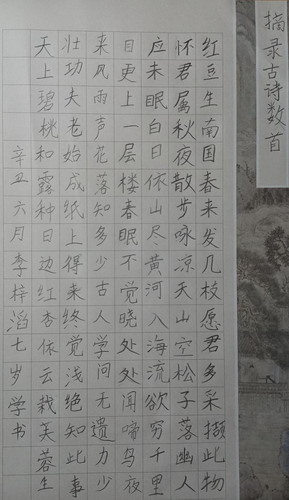 摘录古诗数首
红豆生南国春来发几枝愿君多采撷此物
怀君属秋夜散步咏凉天山空松子落幽人
应未眠白日依山尽黄河入海流欲穷千里
目更上一层楼春眠不觉晓处处闻啼鸟夜
来风雨声花落知多少古人学问无遗力少
壮功夫老始成纸上得来终觉浅绝知此事
天上碧桃和露种日边红杏依云栽芙蓉生
辛丑六月李梓滔七岁学书